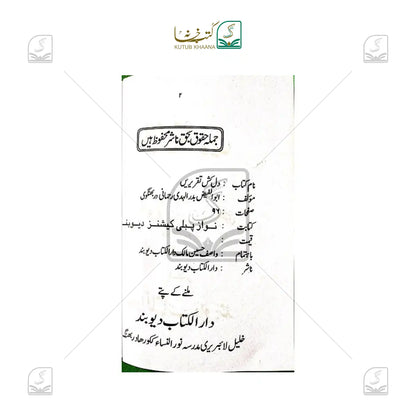 کتب خانہ
KUTUB KHAANA
۲
جملہ حقوق بحق ناشر محفوظ ہیں
نام کتاب : دل کش تقریریں
مؤلف : ابوالفیض بدر الہدیٰ رحمانی دربھنگوی
صفحات : ۹۶
کتابت : نواز پبلی کیشنز دیوبند
قیمت :
باہتمام : واصف حسین مالک دار الکتاب دیوبند
ناشر : دار الکتاب دیوبند
ملنے کے پتے
دار الکتاب دیوبند
خلیل لائبریری مدرسہ نور النساء